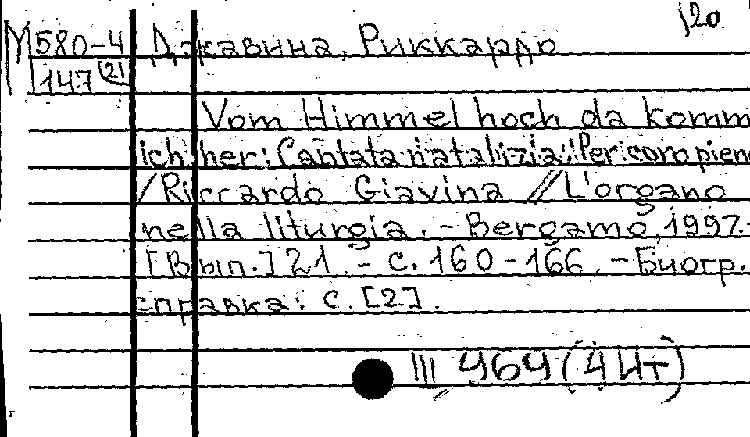 120
М580-4 Джавина, Риккардо
147(2)
Vom Himmel hoch da komm
ich her: Cantata natalizia: Per coro pieno
/Riccardo Giavina // L'organo
nella liturgia. - Bergamo, 1997. -
[Вып.] 21. - с. 160-166. - Биогр.
справка: с. [2].
III 969 (4 Ит)